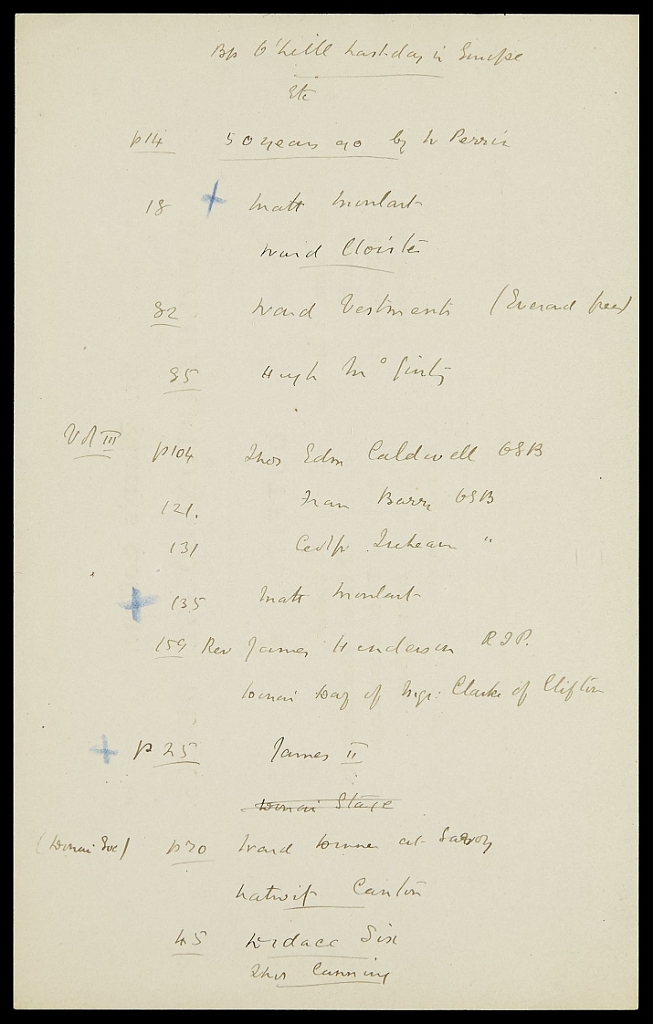 Bp O'Neill Last days in Europe
Etc
p14 50 years ago by W Perrin
18 + Matt
Ward Cloister
32 Ward Vestments (Everard Green)
35 Hugh McGinty
Vol III p104 Thos Edm Caldwell OSB
121. Fran Barry OSB
131 "
+ 135 Matt
159 Rev James Henderson R.I.P.
Douai Day of Mgr: Clarke of Clifton
+ p 25 James II
Douai Stage
(Douai Soc) p30 Ward Dinner at Savoy
Canton
45 Didace Six
Thos Canning